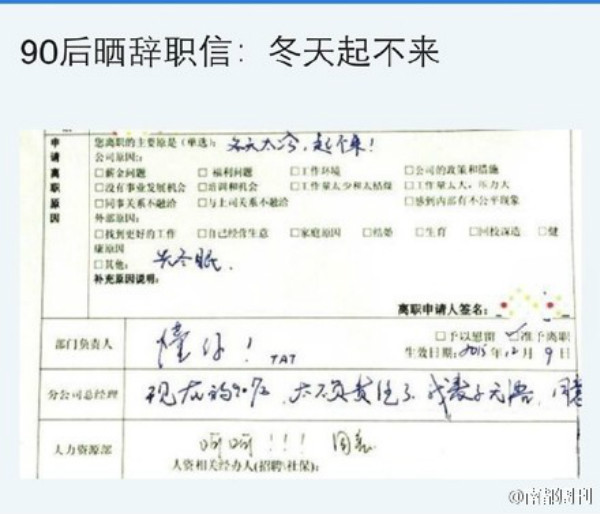 90后晒辞职信：冬天起不来
申请离职原因
您离职的主要原是(单选)：冬天太冷，起不来！
公司原因：
□薪金问题 □福利问题 □工作环境 □公司的政策和措施
□没有事业发展机会 □培训和机会 □工作量太少和太枯燥 □工作量太大，压力大
□同事关系不融洽 □与上司关系不融洽 □感到内部有不公平现象
外部原因：
□找到更好的工作 □自己经营生意 □家庭原因 □结婚 □生育 □回校深造 □健
康原因
□其他：去冬眠.
补充原因说明：
离职申请人签名：
部门负责人
懂你！TAT
□予以慰留 ☑准予离职
生效日期：2015年12月9日
分公司总经理
现在的90后，太不负责任了，我表示无语，同意
人力资源部
呵呵！！！同意
人资相关经办人(招聘\社保)：
@南都周刊